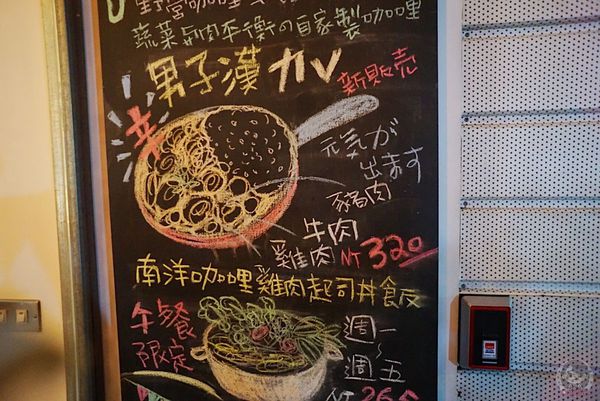 野營咖哩
蔬菜與肉平衡の自家製咖哩
男子漢カレー
新販売
辛
元気が
出ます
豬肉
牛肉
雞肉 NT 320
南洋咖哩雞肉起司丼飯
午餐
限定
週一
~
週五
NT 26